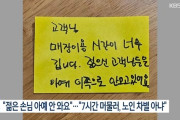 KBS
고객님
매장이용 시간이 너무
깁니다. 젊은 고객님들은
아예 이쪽으로 안오고있어요
"젊은 손님 아예 안 와요"…"7시간 머물러, 노인 차별 아냐"